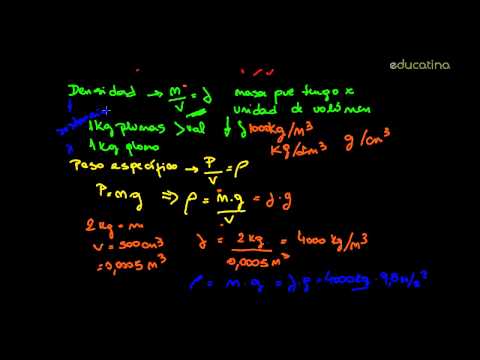 educatina
Densidad → m/V = δ masa que tengo x
unidad de volúmen
1 Kg plumas > vol ↓ δ 1000 kg/m³ g/cm³
1 Kg plomo Kg/dm³
Peso específico → P/V = ρ
P = m·g ⇒ ρ = m·g/V = δ·g
2 Kg = m
V = 500 cm³ δ = 2 Kg/0,0005 m³ = 4000 Kg/m³
= 0,0005 m³
ρ = m·g = δ·g = 4000 Kg · 9,8 m/s²